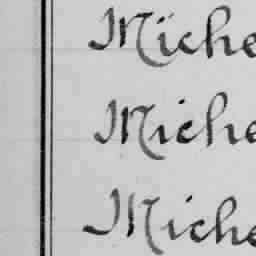 Miche
Miche
Miche